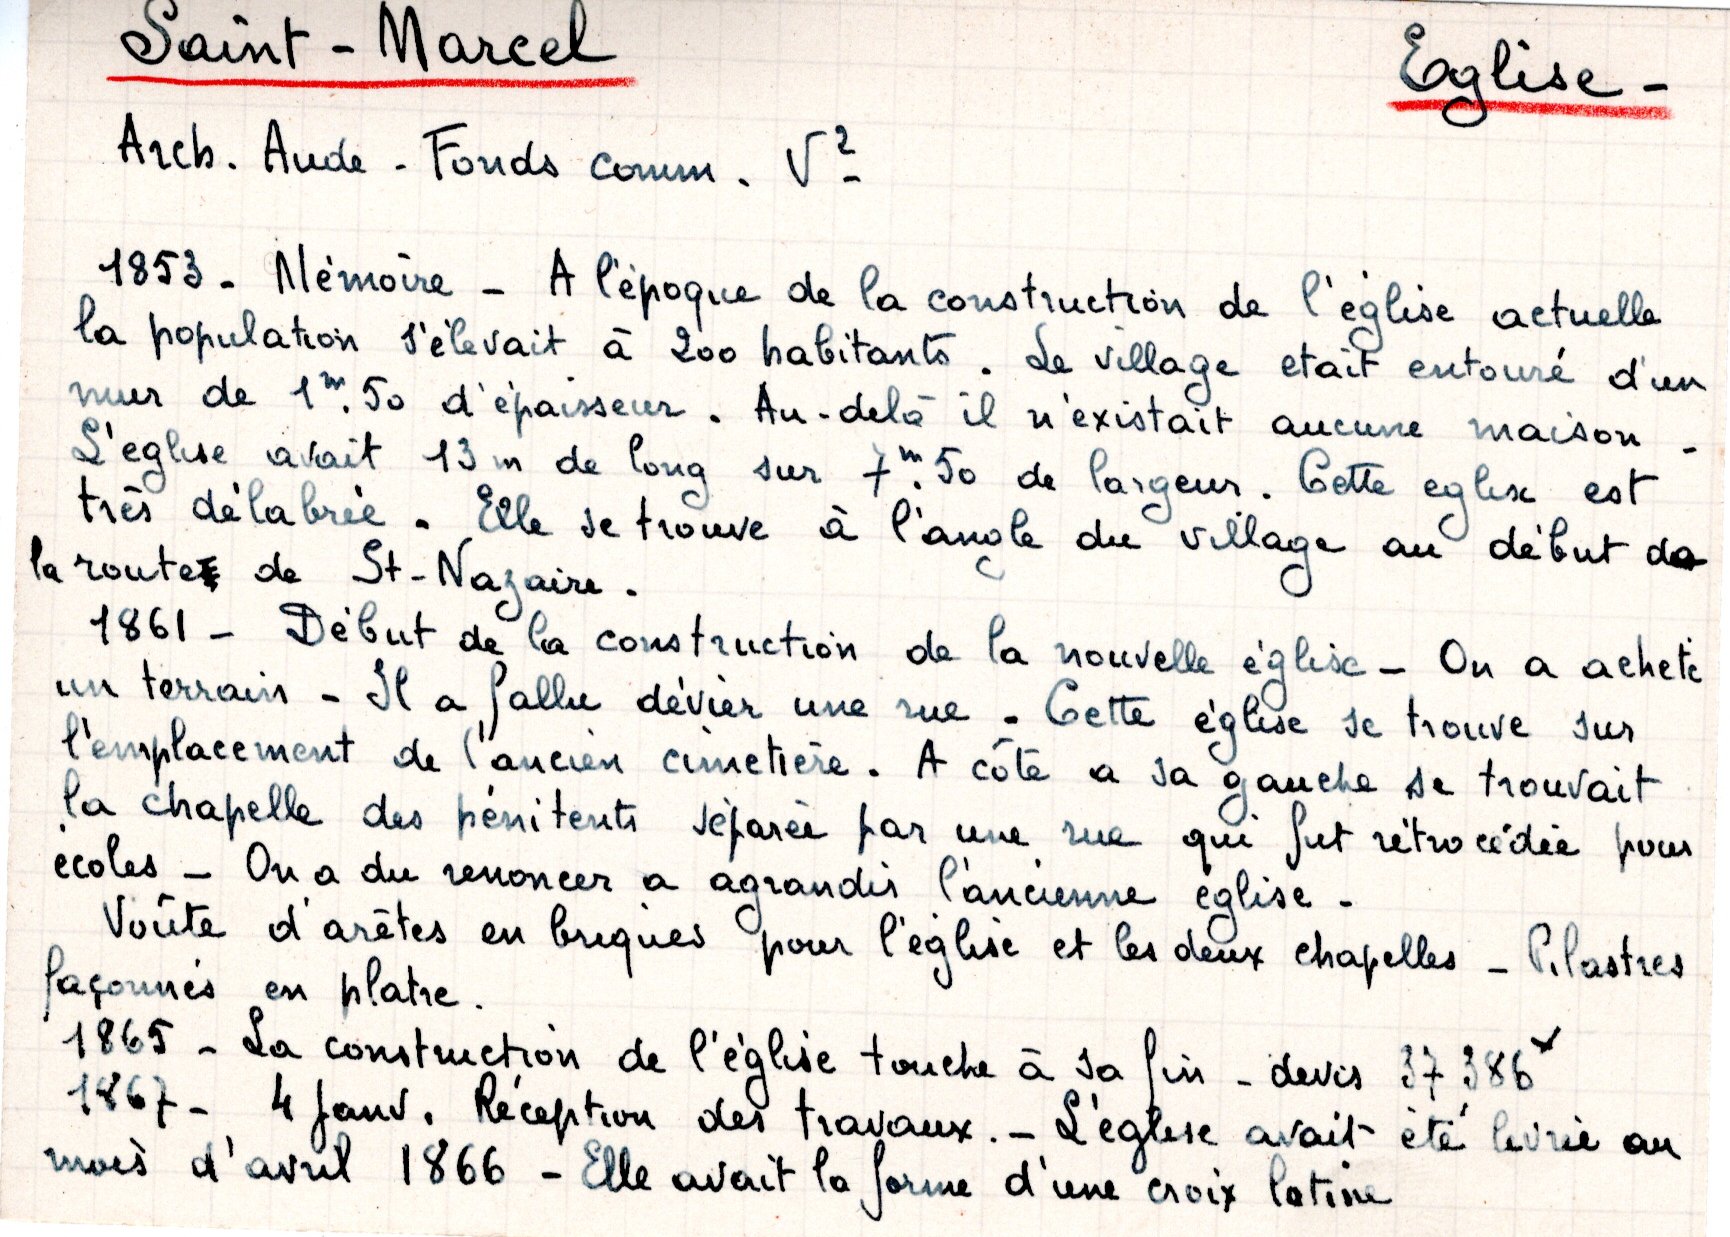 Saint-Marcel
Eglise -
Arch. Aude - Fonds comm. V²
1853 - Mémoire - A l'époque de la construction de l'église actuelle
la population s'élevait à 200 habitants. Le village etait entouré d'un
mur de 1m.50 d'épaisseur. Au-delà il n'existait aucune maison -
L'eglise avait 13 m de long sur 7m.50 de largeur. Cette eglise est
très délabrée. Elle se trouve à l'angle du village au début de
la route de St-Nazaire.
1861 - Début de la construction de la nouvelle église - On a acheté
un terrain - Il a fallu dévier une rue - Cette église se trouve sur
l'emplacement de l'ancien cimetière. A côté a sa gauche se trouvait
la chapelle des pénitents séparée par une rue qui fut rétrocédée pour
écoles - On a du renoncer a agrandir l'ancienne église -
Voûte d'arêtes en briques pour l'église et les deux chapelles - Pilastres
façonnés en platre.
1865 - La construction de l'église touche à sa fin - devis 37 386
1867 - 4 Janv. Réception des travaux. - L'église avait été livrée au
mois d'avril 1866 - Elle avait la forme d'une croix latine